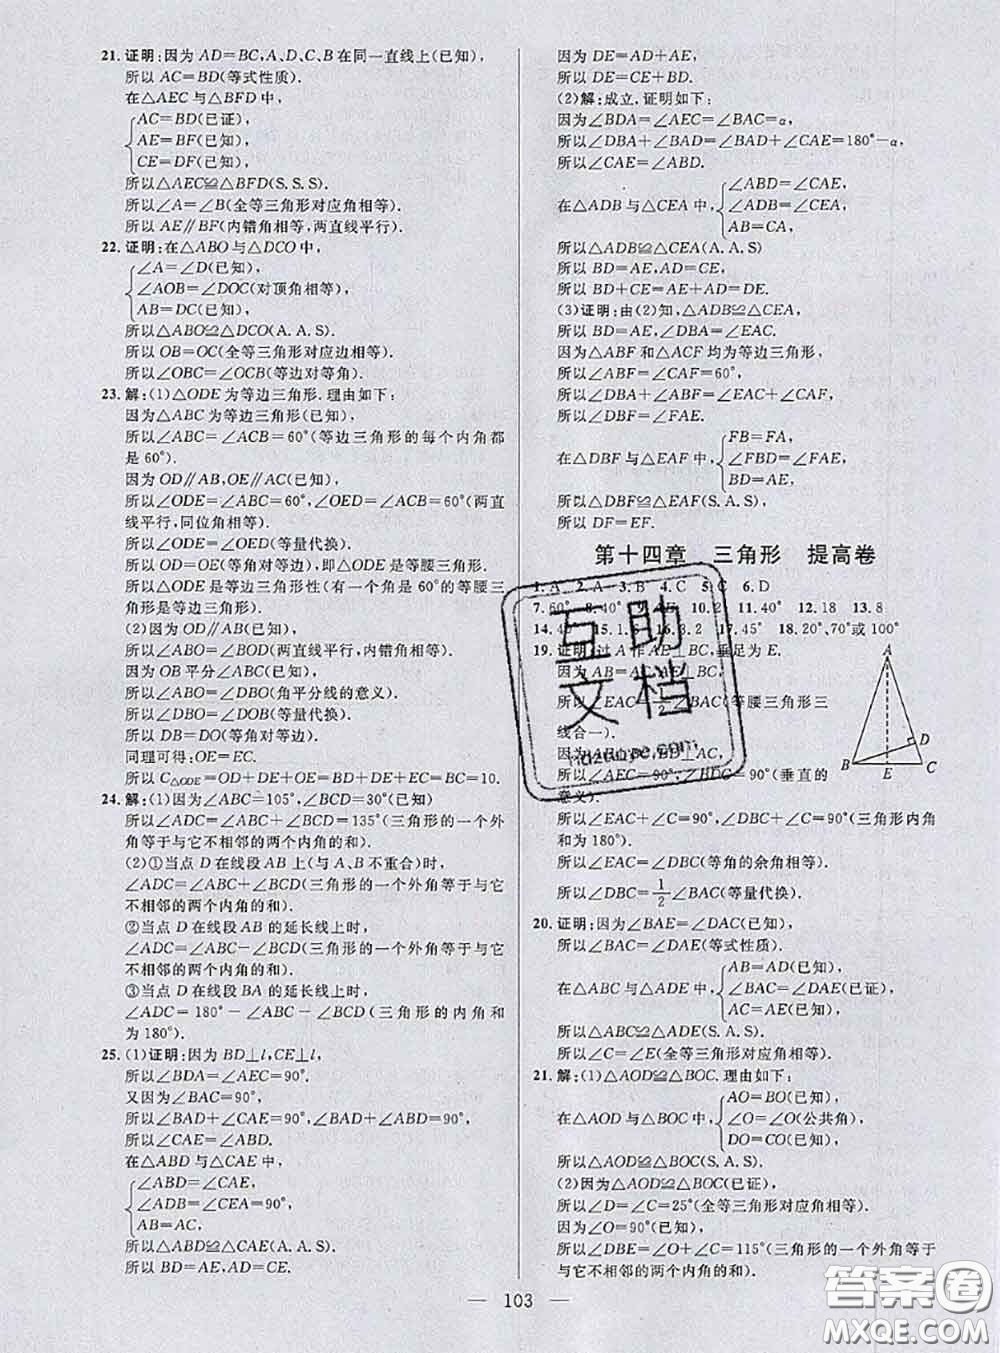 21. 证明:因为 AD=BC,A、D、C、B 在同一直线上(已知),
所以 AC=BD(等式性质).
在△AEC 与△BFD 中,
AC=BD(已证),
AE=BF(已知),
CE=DF(已知),
所以△AEC≌△BFD(S.S.S).
所以∠A=∠B(全等三角形对应角相等).
所以 AE∥BF(内错角相等,两直线平行).
22. 证明:在△ABO 与△DCO 中,
∠A=∠D(已知),
∠AOB=∠DOC(对顶角相等),
AB=DC(已知),
所以△ABO≌△DCO(A.A.S).
所以 OB=OC(全等三角形对应边相等).
所以∠OBC=∠OCB(等边对等角).
23. 解:(1)△ODE 为等边三角形.理由如下:
因为△ABC 为等边三角形(已知),
所以∠ABC=∠ACB=60°(等边三角形的每个内角都
是 60°).
因为 OD∥AB,OE∥AC(已知),
所以∠ODE=∠ABC=60°,∠OED=∠ACB=60°(两直
线平行,同位角相等).
所以∠ODE=∠OED(等量代换).
所以 OD=OE(等角对等边),即△ODE 为等腰三角形.
所以△ODE 是等边三角形性(有一个角是 60°的等腰三
角形是等边三角形).
(2)因为 OD∥AB(已知),
所以∠ABO=∠BOD(两直线平行,内错角相等).
因为 OB 平分∠ABC(已知),
所以∠ABO=∠DBO(角平分线的意义).
所以∠DBO=∠DOB(等量代换).
所以 DB=DO(等角对等边).
同理可得:OE=EC.
所以 C△ODE=OD+DE+OE=BD+DE+EC=BC=10.
24. 解:(1)因为∠ABC=105°,∠BCD=30°(已知)
所以∠ADC=∠ABC+∠BCD=135°(三角形的一个外
角等于与它不相邻的两个内角的和).
(2)①当点 D 在线段 AB 上(与 A、B 不重合)时,
∠ADC=∠ABC+∠BCD(三角形的一个外角等于与它
不相邻的两个内角的和).
②当点 D 在线段 AB 的延长线上时,
∠ADC=∠ABC-∠BCD(三角形的一个外角等于与它
不相邻的两个内角的和).
③当点 D 在线段 BA 的延长线上时,
∠ADC=180°-∠ABC-∠BCD(三角形的内角和
为 180°).
25. (1)证明:因为 BD⊥l,CE⊥l,
所以∠BDA=∠AEC=90°.
又因为∠BAC=90°,
所以∠BAD+∠CAE=90°,∠BAD+∠ABD=90°.
所以∠CAE=∠ABD.
在△ABD 与△CAE 中,
∠ABD=∠CAE,
∠ADB=∠CEA=90°,
AB=AC,
所以△ABD≌△CAE(A.A.S).
所以 BD=AE,AD=CE.
因为 DE=AD+AE,
所以 DE=CE+BD.
(2)解:成立,证明如下:
因为∠BDA=∠AEC=∠BAC=α,
所以∠DBA+∠BAD=∠BAD+∠CAE=180°-α,
所以∠CAE=∠ABD.
∠ABD=∠CAE,
在△ADB 与△CEA 中, ∠ADB=∠CEA,
AB=CA,
所以△ADB≌△CEA(A.A.S)
所以 BD=AE,AD=CE,
所以 BD+CE=AE+AD=DE.
(3)证明:由(2)知,△ADB≌△CEA,
所以 BD=AE,∠DBA=∠EAC.
因为△ABF 和△ACF 均为等边三角形,
所以∠ABF=∠CAF=60°,
所以∠DBA+∠ABF=∠EAC+∠CAF,
所以∠DBF=∠FAE.
FB=FA,
在△DBF 与△EAF 中, ∠FBD=∠FAE,
BD=AE,
所以△DBF≌△EAF(S.A.S),
所以 DF=EF.
第十四章 三角形 提高卷
1. A 2. A 3. B 4. C 5. C 6. D
7. 60° 8. 40° 9. AE 10. 2 11. 40° 12. 18 13. 8
14. 15. 1.6 16. 3.2 17. 45° 18. 20°、70°或 100°
19. 证明:过 A 作 AE⊥BC,垂足为 E.
因为 AB=AC,AE⊥BC,
所以∠EAC=1/2∠BAC(等腰三角形三
线合一).
因为 AE⊥BC,BD⊥AC,
所以∠AEC=90°,∠BDC=90°(垂直的
意义).
所以∠EAC+∠C=90°,∠DBC+∠C=90°(三角形内角
和为 180°).
所以∠EAC=∠DBC(等角的余角相等).
所以∠DBC=1/2∠BAC(等量代换).
A
D
B E C
20. 证明:因为∠BAE=∠DAC(已知),
所以∠BAC=∠DAE(等式性质).
AB=AD(已知),
在△ABC 与△ADE 中, ∠BAC=∠DAE(已证),
AC=AE(已知),
所以△ABC≌△ADE(S.A.S).
所以∠C=∠E(全等三角形对应角相等).
21. 解:(1)△AOD≌△BOC.理由如下:
AO=BO(已知),
在△AOD 与△BOC 中, ∠O=∠O(公共角),
DO=CO(已知),
所以△AOD≌△BOC(S.A.S).
(2)因为△AOD≌△BOC(已证),
所以∠D=∠C=25°(全等三角形对应角相等).
因为∠O=90°(已知),
所以∠DBE=∠O+∠C=115°(三角形的一个外角等于
与它不相邻的两个内角的和).
— 103 —
互助
文档
答案圈
MXQE.COM